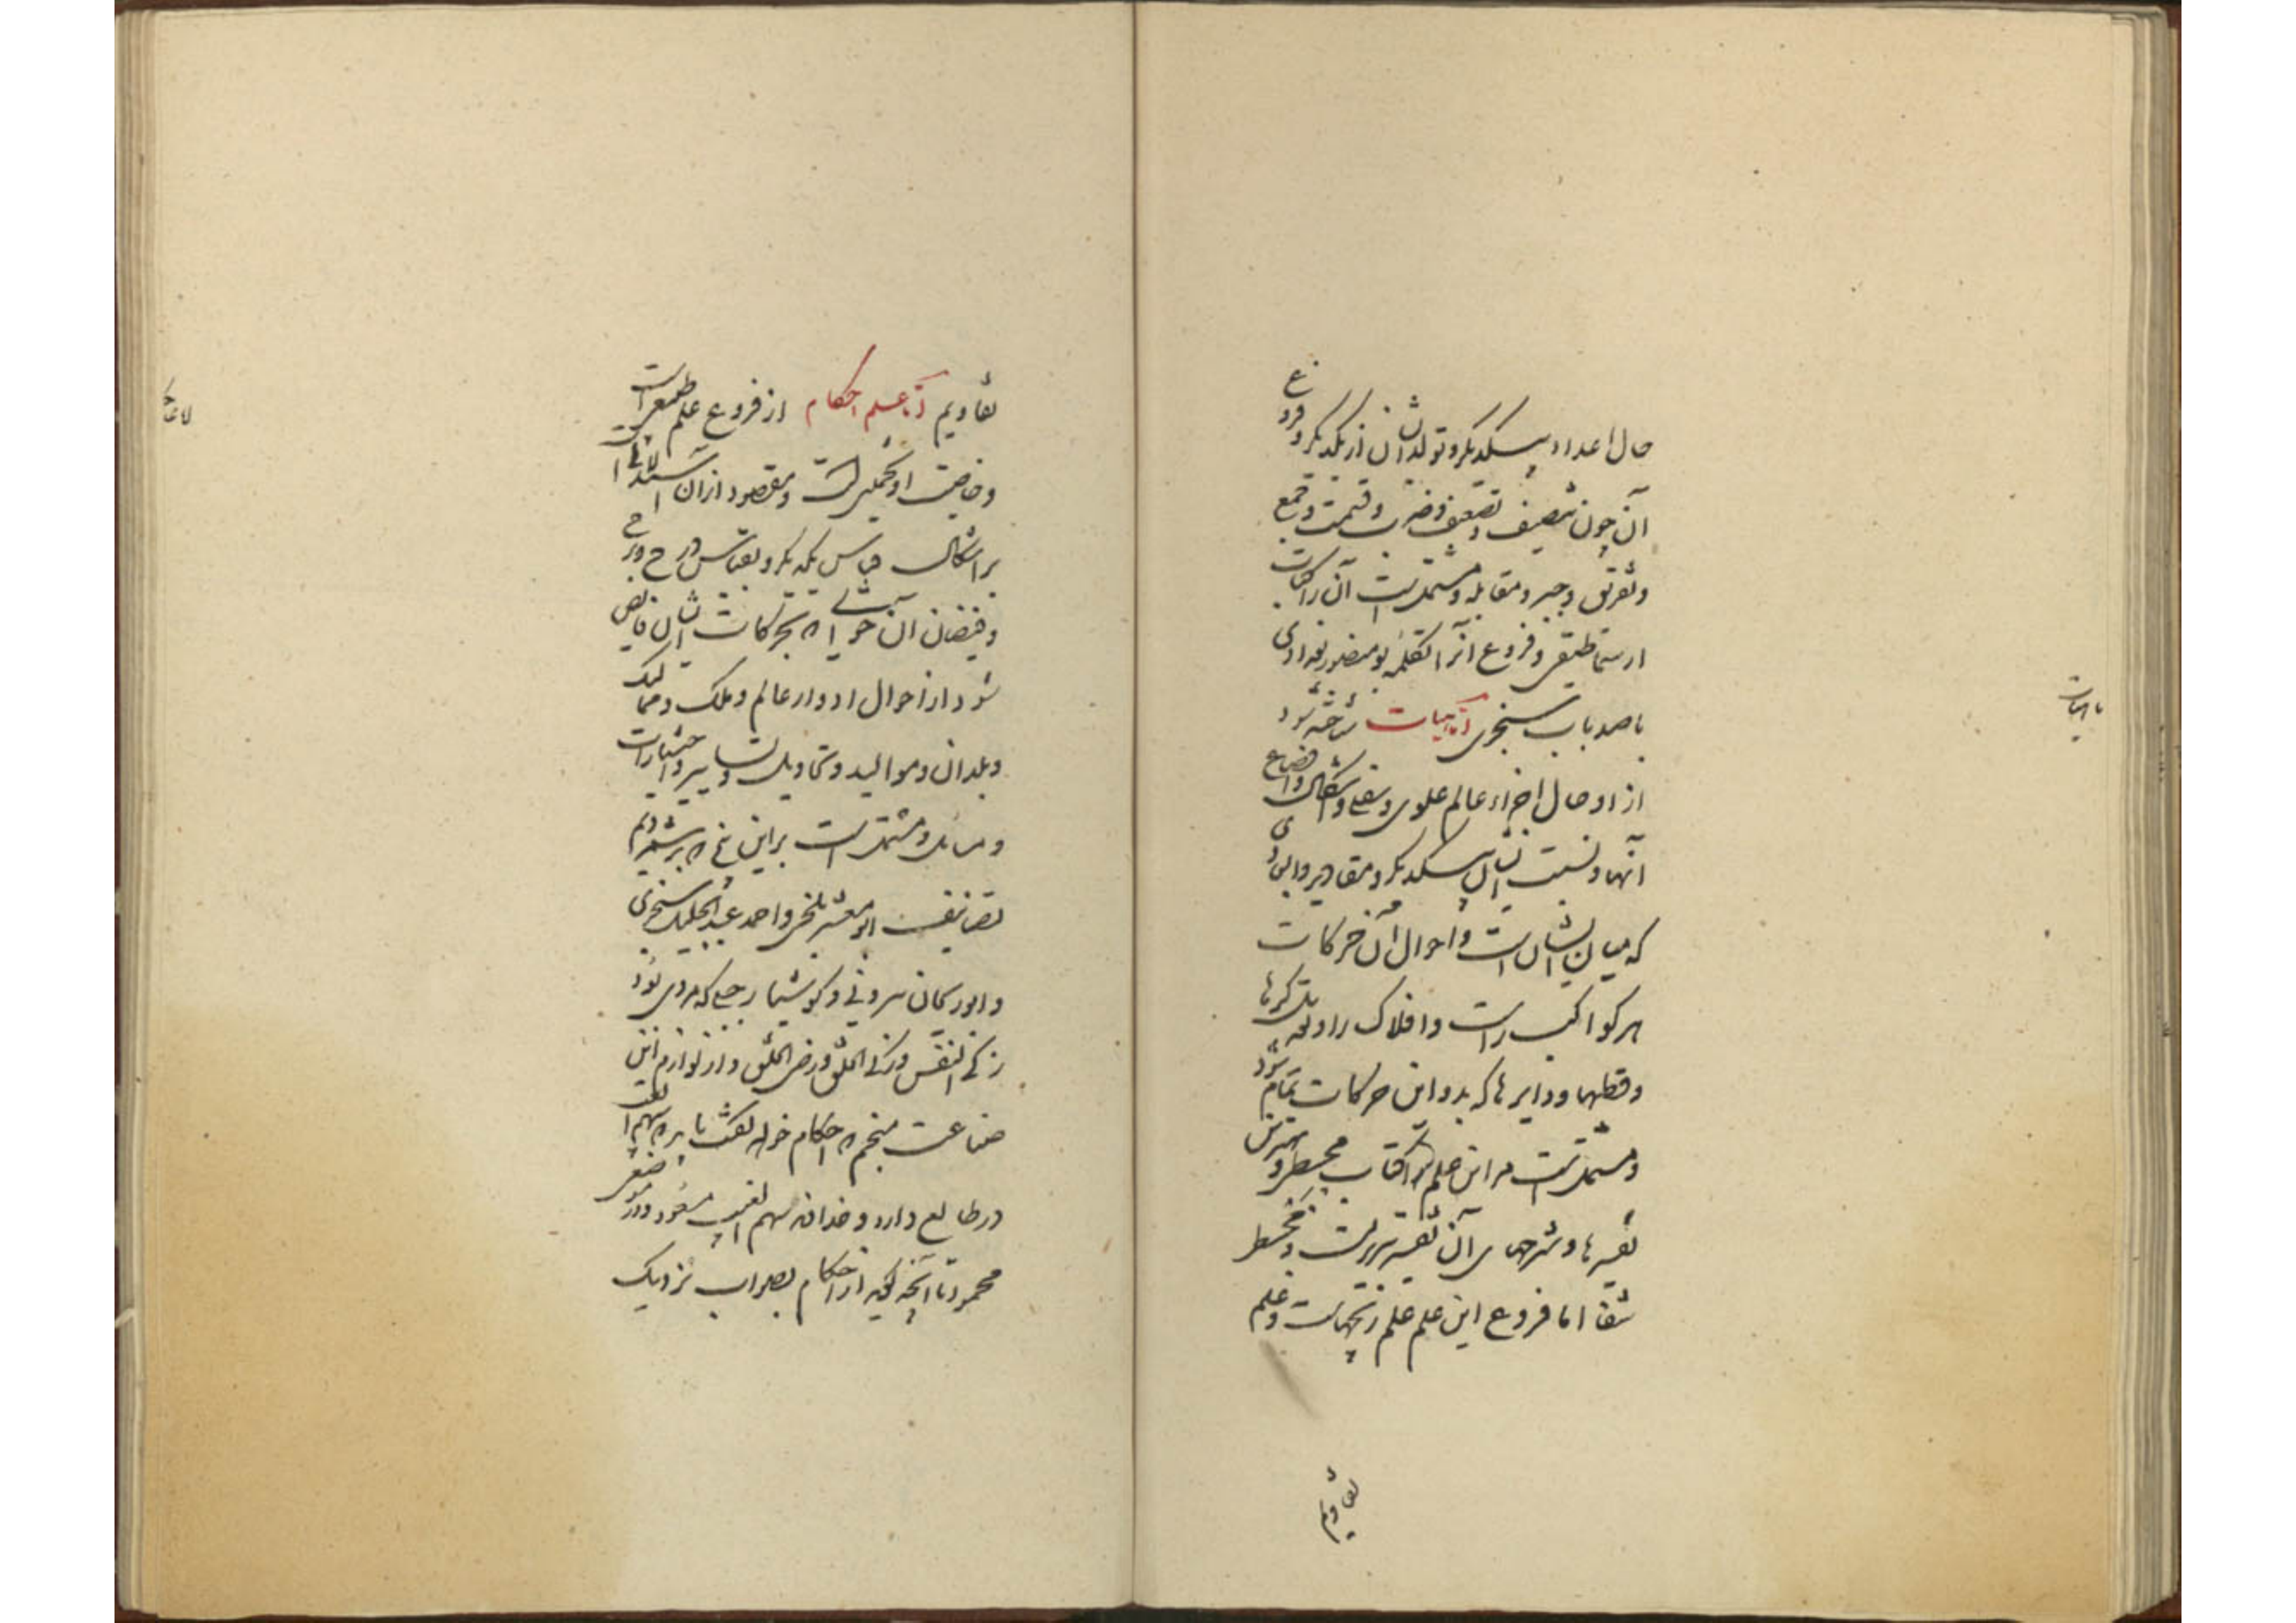 حال اعداد بیکدیگر و تولد ایشان از یکدیگر و فروع
آن چون تنصیف و تضعیف و ضرب و قسمت و جمع
و تفریق و جبر و مقابله و مشتملست آن را کتاب
ارثماطیقی و فروع آنرا تکمله بومنصور بغدادی
یا صد باب سنجری اما هیات شناخته شود
از او حال اجزاء عالم علوی و سفلی و اشکال و اوضاع
آنها و نسبت ایشان بیکدیگر و مقادیر و ابعادی
که میان ایشان است و احوال آن حرکات
هر کواکب راست و افلاک را و تعدیل کرها
و قطبها و دایرها که بدو این حرکات تمام شود
و مشتملست مر این علم را کتاب مجسطی و بهترین
تفسیرها و شرحهای آن تفسیر نیریزیست و مجسطی
شفا اما فروع این علم علم زیجهاست و علم
تقاویم
تقاویم اما علم احکام از فروع علم طبیعی است
و خاصیت او تخمین است و مقصود از آن استدلال است
بر اشکال بقیاس یکدیگر و بقیاس درج و بروج
و فیضان آن حوادثی که بحرکات ایشان فایض
شود از احوال ادوار عالم و ملک و ممالک
و بلدان و موالید و تحاویل و تسایير و اختیارات
و مسائل و مشتمل است براین پنج که برشمردیم
تصانیف ابو معشر بلخی و احمد عبد الجلیل سنجری
و ابوریحان بیرونی و کوشیار جیلی که مردی بود
زکی النفس و زکی الخلق و رضی الخلق و از لوازم این
صناعت منجم که احکام خواهد گفت باید که سهم الغیب
در طالع دارد و خداوند سهم الغیب مسعود و در موضعی
محمود تا آنچه گوید از احکام بصواب نزدیک